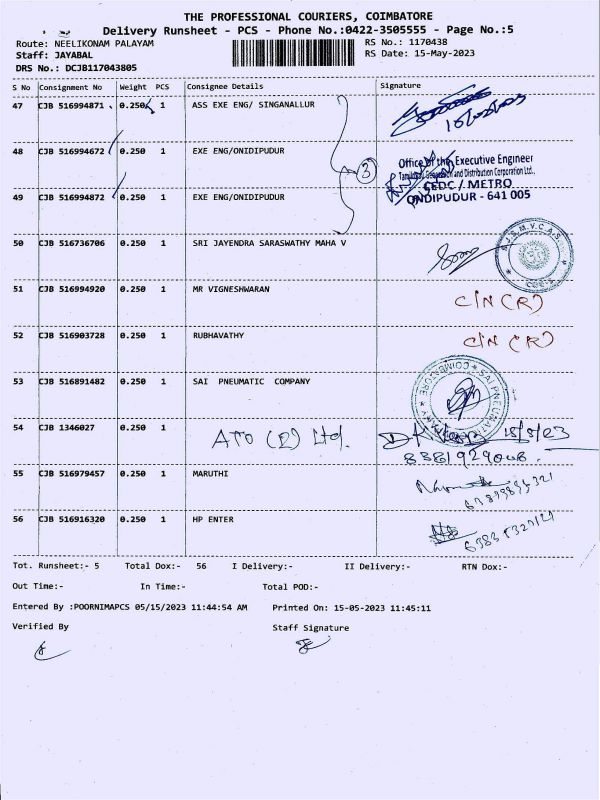 THE PROFESSIONAL COURIERS, COIMBATORE
Delivery Runsheet - PCS - Phone No.:0422-3505555 - Page No.:5
Route: NEELIKONAM PALAYAM
RS No.: 1170438
Staff: JAYABAL
RS Date: 15-May-2023
DRS No.: DCJB117043805
S No Consignment No Weight PCS Consignee Details Signature
47 CJB 516994871 0.250 1 ASS EXE ENG/ SINGANALLUR
48 CJB 516994672 0.250 1 EXE ENG/ONIDIPUDUR
3
Office of the Executive Engineer
Generation and Distribution Corporation Ltd.,
CEDC / METRO
ONDIPUDUR - 641 005
49 CJB 516994872 0.250 1 EXE ENG/ONIDIPUDUR
50 CJB 516736706 0.250 1 SRI JAYENDRA SARASWATHY MAHA V
51 CJB 516994920 0.250 1 MR VIGNESHWARAN
C/N (R)
52 CJB 516903728 0.250 1 RUBHAVATHY
C/N (R)
53 CJB 516891482 0.250 1 SAI PNEUMATIC COMPANY
54 CJB 1346027 0.250 1
55 CJB 516979457 0.250 1 MARUTHI
56 CJB 516916320 0.250 1 HP ENTER
Tot. Runsheet:- 5 Total Dox:- 56 I Delivery:- II Delivery:- RTN Dox:-
Out Time:- In Time:- Total POD:-
Entered By :POORNIMAPCS 05/15/2023 11:44:54 AM Printed On: 15-05-2023 11:45:11
Verified By Staff Signature